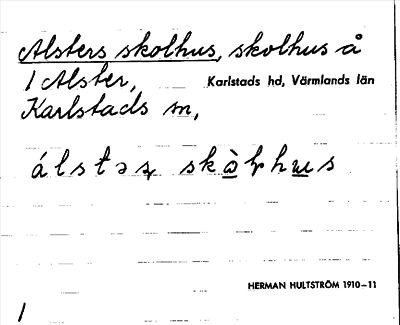 Alsters skolhus, skolhus å
1 Alster, Karlstads hd, Värmlands län
Karlstads sn,
álstəʂ
HERMAN HULTSTRÖM 1910–11
1